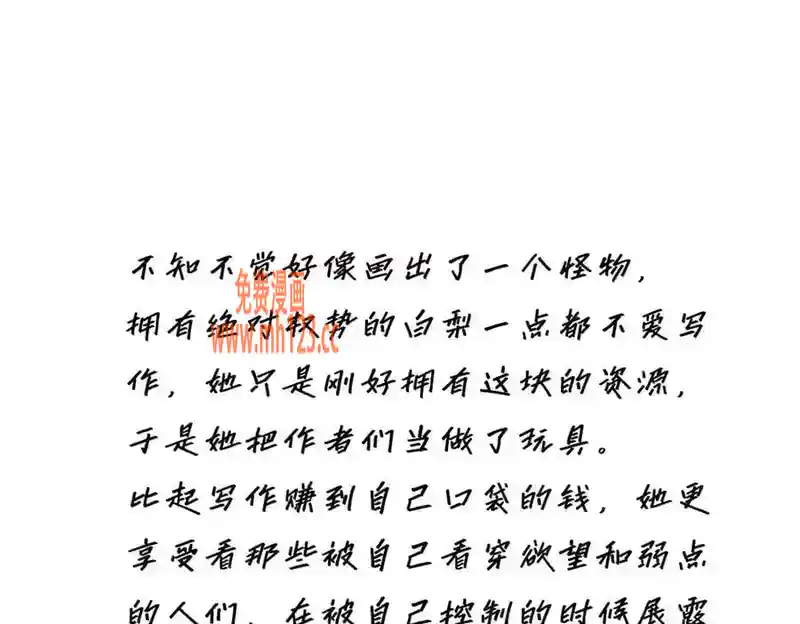 不知不觉好像画出了一个怪物，
免费漫画
拥有绝对权势的白梨一点都不爱写
www.mh123.cc
作，她只是刚好拥有这块的资源，
于是她把作者们当做了玩具。
比起写作赚到自己口袋的钱，她更
享受看那些被自己看穿欲望和弱点
的人们，在被自己控制的时候展露